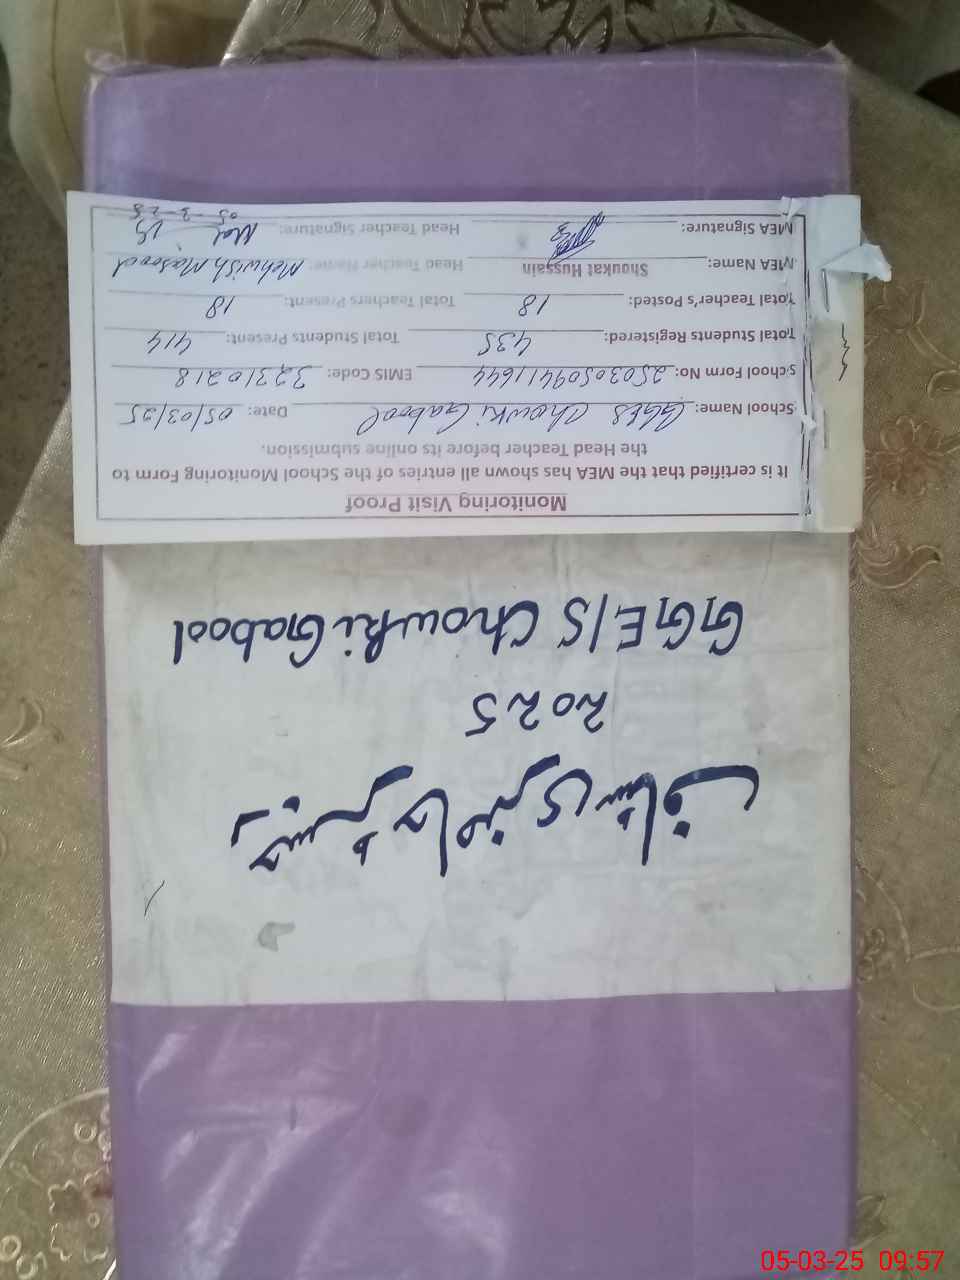 Monitoring Visit Proof
It is certified that the MEA has shown all entries of the School Monitoring Form to
the Head Teacher before its online submission.
School Name: GGES Chowki Gabool Date: 05/03/25
School Form No: 25030509411644 EMIS Code: 32310218
Total Students Registered: 435 Total Students Present: 414
Total Teacher's Posted: 18 Total Teachers Present: 18
MEA Name: Shoukat Hussain Head Teacher Name: Mehwish Masood
MEA Signature: Head Teacher Signature:
05-3-25
GGE/S Chowki Gabool
2025
رجسٹر حاضری سٹاف
05-03-25 09:57